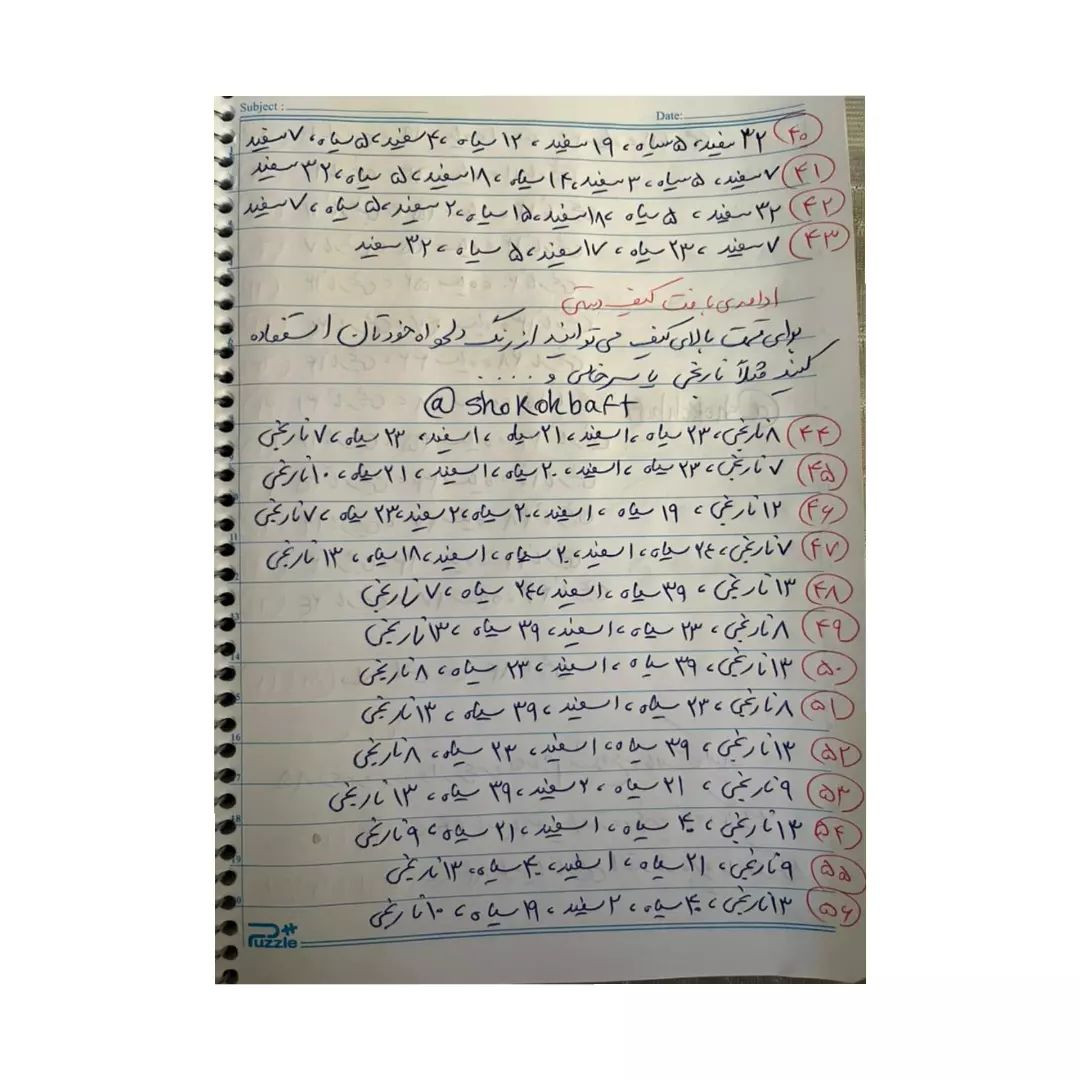 Subject :
Date:
۴۰ ۳۲ سفید، ۵ سیاه، ۱۹ سفید، ۱۲ سیاه، ۴ سفید، ۵ سیاه، ۷ سفید
۴۱ ۷ سفید، ۵ سیاه، ۳ سفید، ۱۴ سیاه، ۱۸ سفید، ۵ سیاه، ۳۲ سفید
۴۲ ۳۲ سفید، ۵ سیاه، ۱۸ سفید، ۱۵ سیاه، ۲ سفید، ۵ سیاه، ۷ سفید
۴۳ ۷ سفید، ۲۳ سیاه، ۱۷ سفید، ۵ سیاه، ۳۲ سفید
ادامه‌ی بافت کیف دستی
برای قسمت بالای کیف می توانید از رنگ دلخواه خودتان استفاده
کنید مثلاً نارنجی یا سرخابی و ....
@shokokbaft
۴۴ ۸ نارنجی، ۲۳ سیاه، ۱ سفید، ۲۱ سیاه، ۱ سفید، ۲۳ سیاه، ۷ نارنجی
۴۵ ۷ نارنجی، ۲۳ سیاه، ۱ سفید، ۲۰ سیاه، ۱ سفید، ۲۱ سیاه، ۱۰ نارنجی
۴۶ ۱۲ نارنجی، ۱۹ سیاه، ۱ سفید، ۲۰ سیاه، ۲ سفید، ۲۳ سیاه، ۷ نارنجی
۴۷ ۷ نارنجی، ۲۴ سیاه، ۱ سفید، ۲۰ سیاه، ۱ سفید، ۱۸ سیاه، ۱۳ نارنجی
۴۸ ۱۳ نارنجی، ۳۹ سیاه، ۱ سفید، ۲۴ سیاه، ۷ نارنجی
۴۹ ۸ نارنجی، ۲۳ سیاه، ۱ سفید، ۳۹ سیاه، ۱۳ نارنجی
۵۰ ۱۳ نارنجی، ۳۹ سیاه، ۱ سفید، ۲۳ سیاه، ۸ نارنجی
۵۱ ۸ نارنجی، ۲۳ سیاه، ۱ سفید، ۳۹ سیاه، ۱۳ نارنجی
۵۲ ۱۳ نارنجی، ۳۹ سیاه، ۱ سفید، ۲۳ سیاه، ۸ نارنجی
۵۳ ۹ نارنجی، ۲۱ سیاه، ۲ سفید، ۳۹ سیاه، ۱۳ نارنجی
۵۴ ۱۳ نارنجی، ۴۰ سیاه، ۱ سفید، ۲۱ سیاه، ۹ نارنجی
۵۵ ۹ نارنجی، ۲۱ سیاه، ۱ سفید، ۴۰ سیاه، ۱۳ نارنجی
۵۶ ۱۳ نارنجی، ۴۰ سیاه، ۲ سفید، ۱۹ سیاه، ۱۰ نارنجی
Puzzle